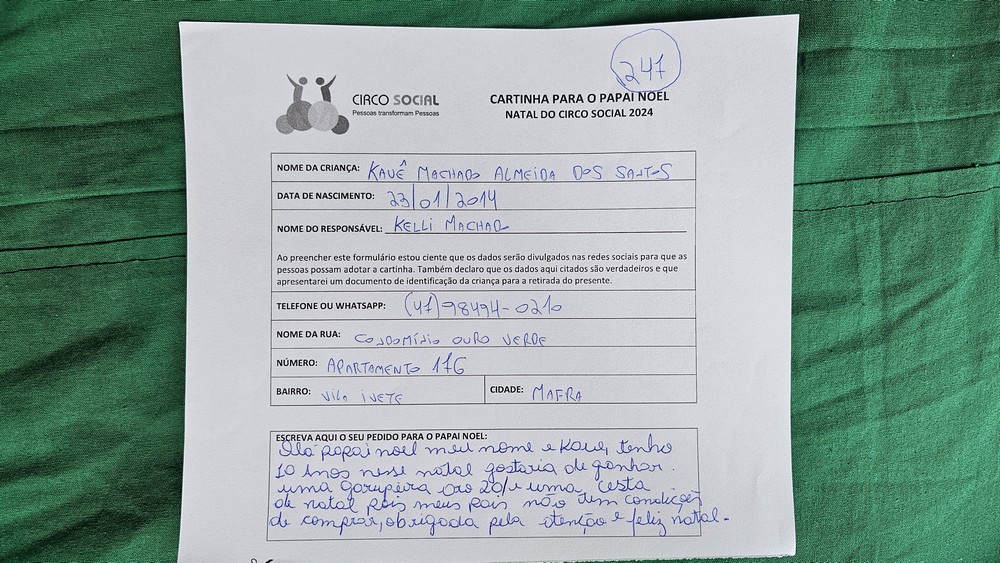 247
CIRCO SOCIAL
Pessoas transformam Pessoas
CARTINHA PARA O PAPAI NOEL
NATAL DO CIRCO SOCIAL 2024
NOME DA CRIANÇA: KAUÊ MACHADO ALMEIDA DOS SANTOS
DATA DE NASCIMENTO: 23/01/2014
NOME DO RESPONSÁVEL: KELLI MACHADO
Ao preencher este formulário estou ciente que os dados serão divulgados nas redes sociais para que as
pessoas possam adotar a cartinha. Também declaro que os dados aqui citados são verdadeiros e que
apresentarei um documento de identificação da criança para a retirada do presente.
TELEFONE OU WHATSAPP: (47)98494-0210
NOME DA RUA: CONDOMÍNIO OURO VERDE
NÚMERO: APARTAMENTO 176
BAIRRO: Vila IVETE CIDADE: MAFRA
ESCREVA AQUI O SEU PEDIDO PARA O PAPAI NOEL:
Olá papai noel meu nome e Kaue, tenho
10 anos nesse natal gostaria de ganhar
uma garupeira aro 20/e uma cesta
de natal pois meus pais não tem condições
de comprar, obrigada pela atenção e feliz natal.